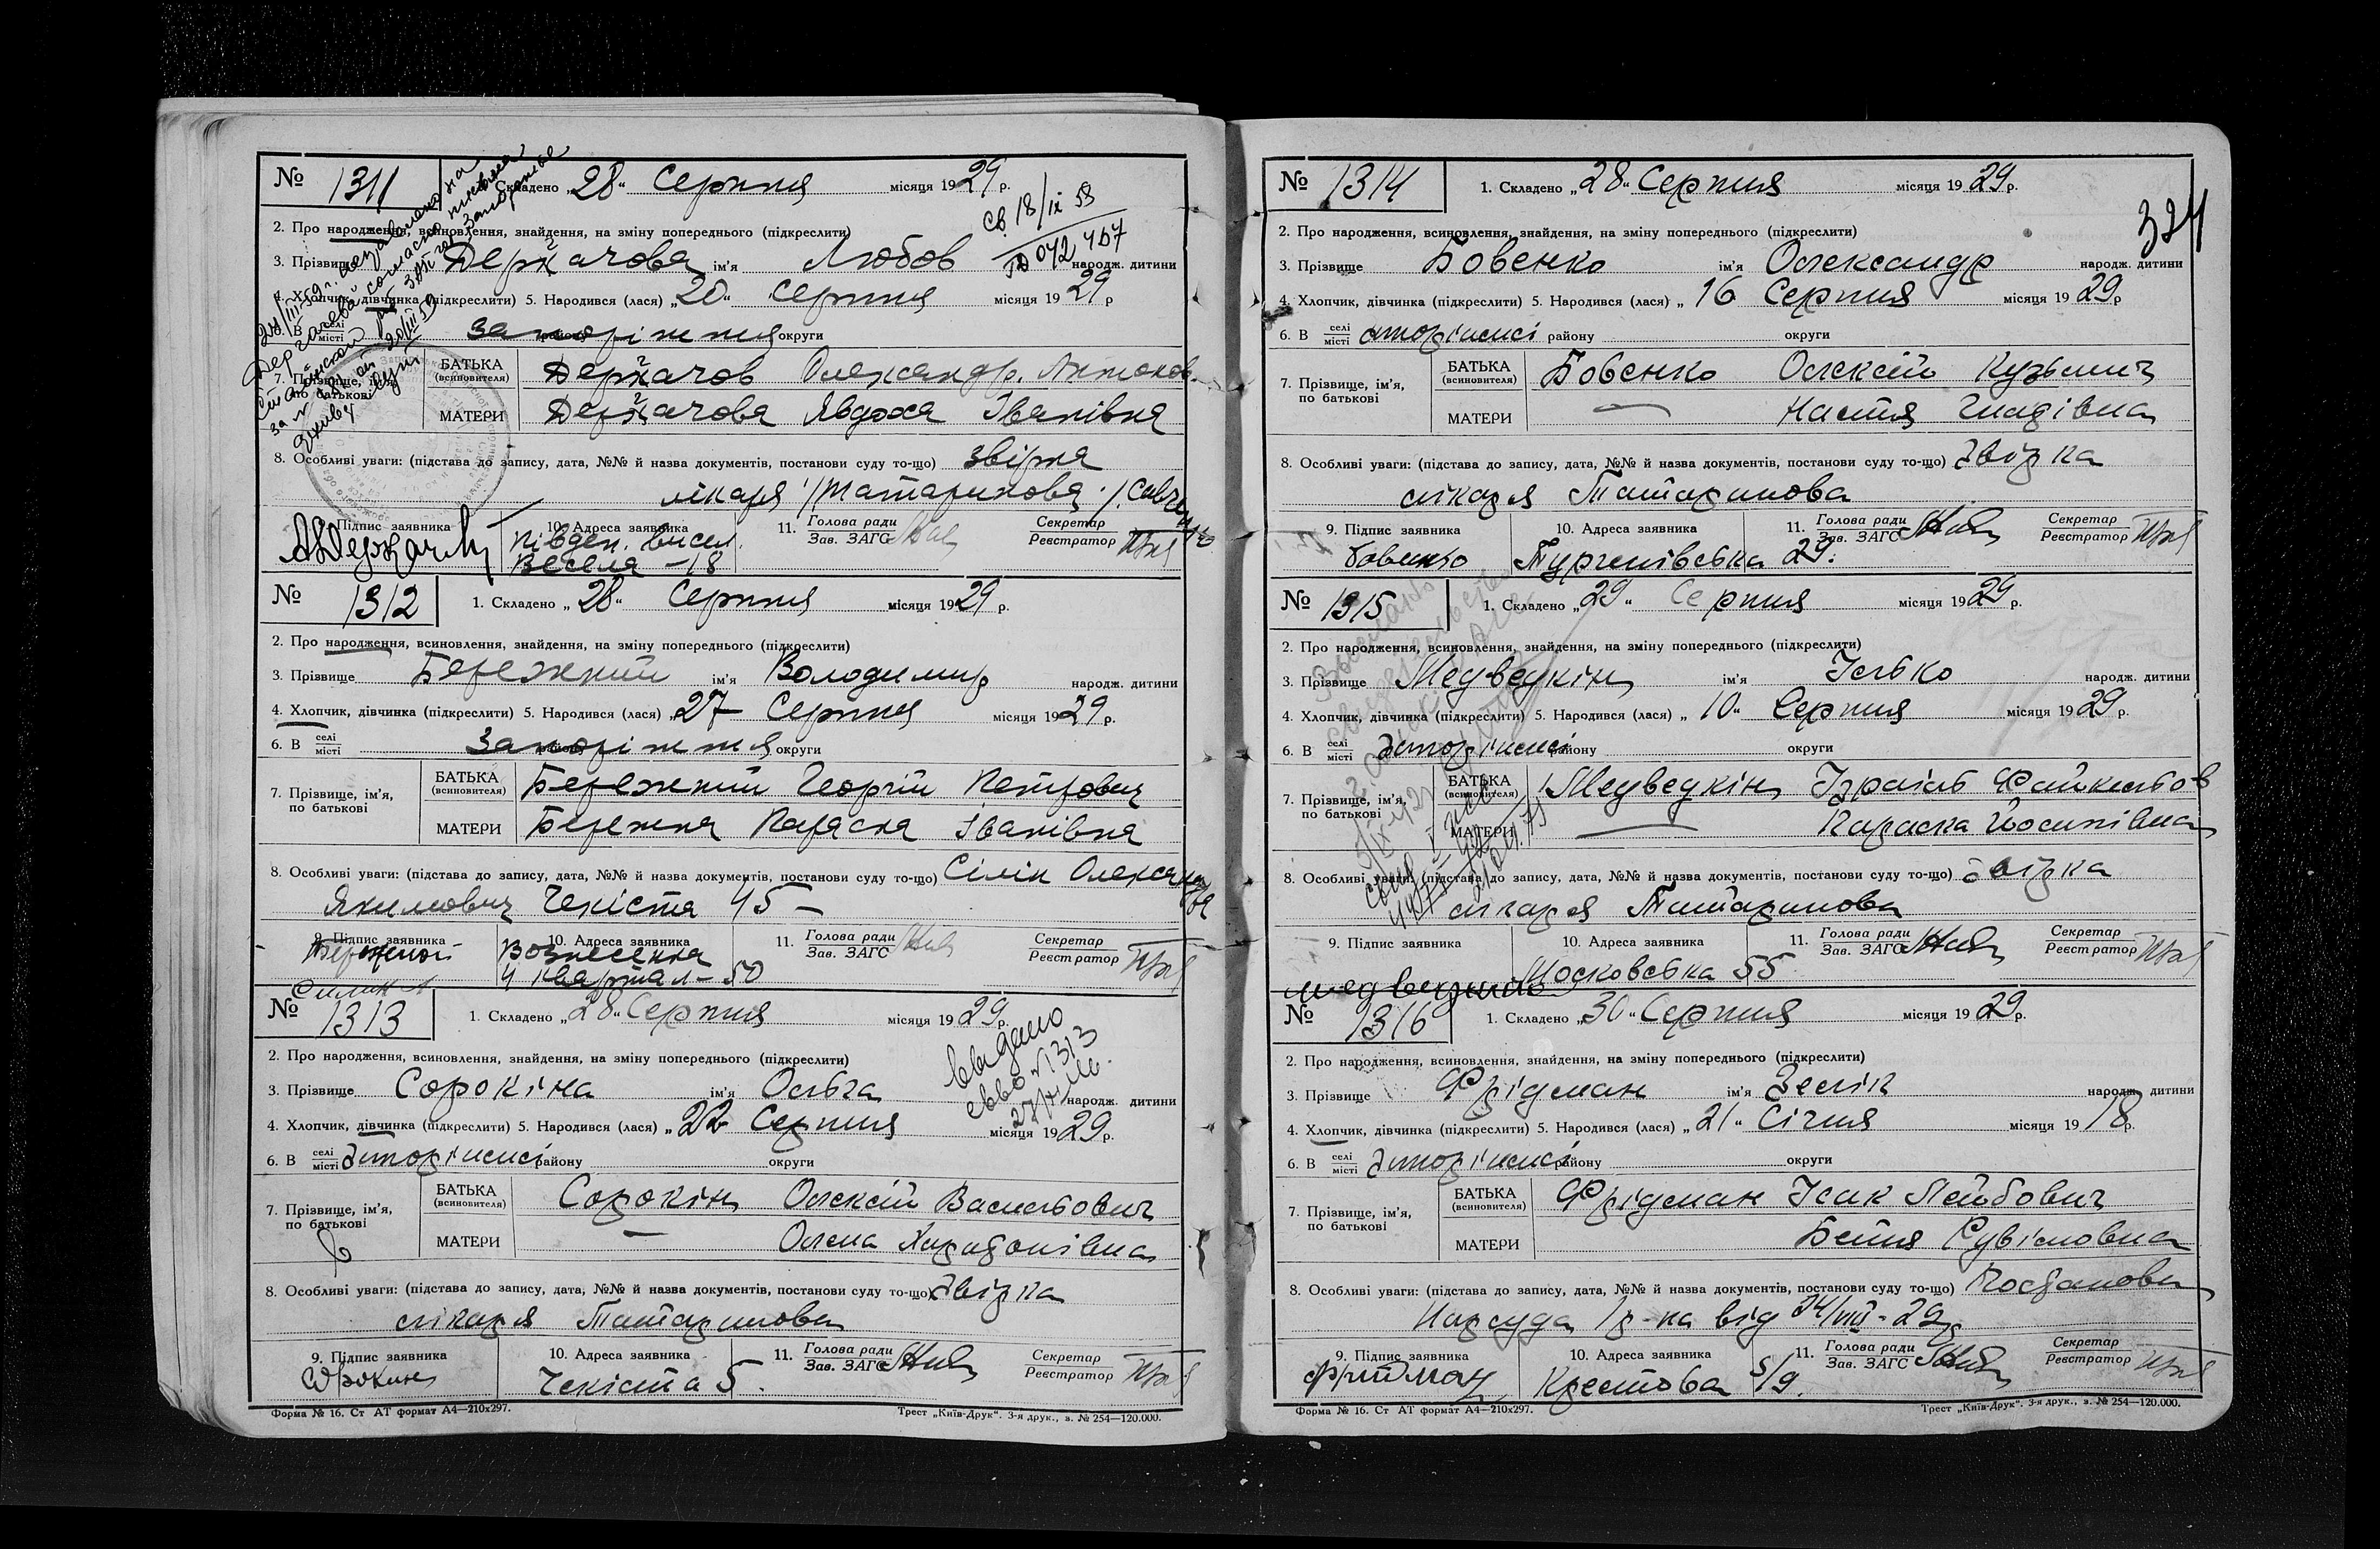 № 1311 1. Складено „28“ Серпня місяця 1929 р.
св. 18/IX 53
2. Про народження, всиновлення, знайдення, на зміну попереднього (підкреслити)
042407
3. Прізвище Держачова ім'я Любов народж. дитини
4. Хлопчик, дівчинка (підкреслити) 5. Народився (лася) „20“ Серпня місяця 1929 р
6. В селі місті Запоріжжя округи
7. Прізвище, ім'я, по батькові
БАТЬКА (всиновителя) Держачов Олександр. Антонов.
МАТЕРИ Держачова Явдоха Іванівна
8. Особливі уваги: (підстава до запису, дата, №№ й назва документів, постанови суду то-що) звірка
лікаря Татаринова
9. Підпис заявника 10. Адреса заявника 11. Голова ради Зав. ЗАГС Секретар Реєстратор
Півден. висел.
Весела – 18
№ 1312 1. Складено „28“ Серпня місяця 1929 р.
2. Про народження, всиновлення, знайдення, на зміну попереднього (підкреслити)
3. Прізвище Бережний ім'я Володимир народж. дитини
4. Хлопчик, дівчинка (підкреслити) 5. Народився (лася) „27 Серпня місяця 1929 р.
6. В селі місті Запоріжжя округи
7. Прізвище, ім'я, по батькові
БАТЬКА (всиновителя) Бережний Георгій Петрович
МАТЕРИ Бережна Параска Іванівна
8. Особливі уваги: (підстава до запису, дата, №№ й назва документів, постанови суду то-що) Сілін Олександра
Якимович Чекіста 45 –
9. Підпис заявника 10. Адреса заявника 11. Голова ради Зав. ЗАГС Секретар Реєстратор
Бережной Вознесенка
4 квартал – 50
Силин А
№ 1313 1. Складено „28“ Серпня місяця 1929 р.
2. Про народження, всиновлення, знайдення, на зміну попереднього (підкреслити)
выдано
свво №1313
3. Прізвище Сорокіна ім'я Ольга народж. дитини
4. Хлопчик, дівчинка (підкреслити) 5. Народився (лася) „22 Серпня місяця 1929 р.
6. В селі місті Запоріжжі району округи
7. Прізвище, ім'я, по батькові
БАТЬКА (всиновителя) Сорокін Олексій Васильович
МАТЕРИ — Олена Харитонівна
8. Особливі уваги: (підстава до запису, дата, №№ й назва документів, постанови суду то-що) Звірка
лікаря Татаринова
9. Підпис заявника 10. Адреса заявника 11. Голова ради Зав. ЗАГС Секретар Реєстратор
Сорокин Чекіста 5.
Форма № 16. Ст АТ формат А4—210х297. Трест „Київ-Друк“. 3-я друк., з. № 254—120.000.
324
№ 1314 1. Складено „28“ Серпня місяця 1929 р.
2. Про народження, всиновлення, знайдення, на зміну попереднього (підкреслити)
3. Прізвище Бовенко ім'я Олександр народж. дитини
4. Хлопчик, дівчинка (підкреслити) 5. Народився (лася) „ 16 Серпня місяця 1929 р
6. В селі місті Запоріжжі району округи
7. Прізвище, ім'я, по батькові
БАТЬКА (всиновителя) Бовенко Олексій Кузьмич
МАТЕРИ — Настя Гнадівна
8. Особливі уваги: (підстава до запису, дата, №№ й назва документів, постанови суду то-що) Звірка
лікаря Татаринова
9. Підпис заявника 10. Адреса заявника 11. Голова ради Зав. ЗАГС Секретар Реєстратор
Бовенко Тургенівська 29.
№ 1315 1. Складено „29“ Серпня місяця 1929 р.
2. Про народження, всиновлення, знайдення, на зміну попереднього (підкреслити)
3. Прізвище Медведкін ім'я Ілько народж. дитини
4. Хлопчик, дівчинка (підкреслити) 5. Народився (лася) „ 10“ Серпня місяця 1929 р.
6. В селі місті Запоріжжі району округи
7. Прізвище, ім'я, по батькові
БАТЬКА (всиновителя) Медведкін Ізраїль
МАТЕРИ — Параска Йосипівна
8. Особливі уваги: (підстава до запису, дата, №№ й назва документів, постанови суду то-що) Звірка
лікаря Татаринова
9. Підпис заявника 10. Адреса заявника 11. Голова ради Зав. ЗАГС Секретар Реєстратор
Московська 55
№ 1316 1. Складено „30“ Серпня місяця 1929 р.
2. Про народження, всиновлення, знайдення, на зміну попереднього (підкреслити)
3. Прізвище Фрідман ім'я Зелік народж. дитини
4. Хлопчик, дівчинка (підкреслити) 5. Народився (лася) „ 21“ Січня місяця 1918 р.
6. В селі місті Запоріжжі району округи
7. Прізвище, ім'я, по батькові
БАТЬКА (всиновителя) Фрідман Ісак Лейбович
МАТЕРИ Бейля Рувімовна
8. Особливі уваги: (підстава до запису, дата, №№ й назва документів, постанови суду то-що) Постанова
Нарсуда 1 р-на від 24/VIII-29р
9. Підпис заявника 10. Адреса заявника 11. Голова ради Зав. ЗАГС Секретар Реєстратор
Фридман Крестова 5/9.
Форма № 16. Ст АТ формат А4—210х297. Трест „Київ-Друк“. 3-я друк., з. № 254—120.000.